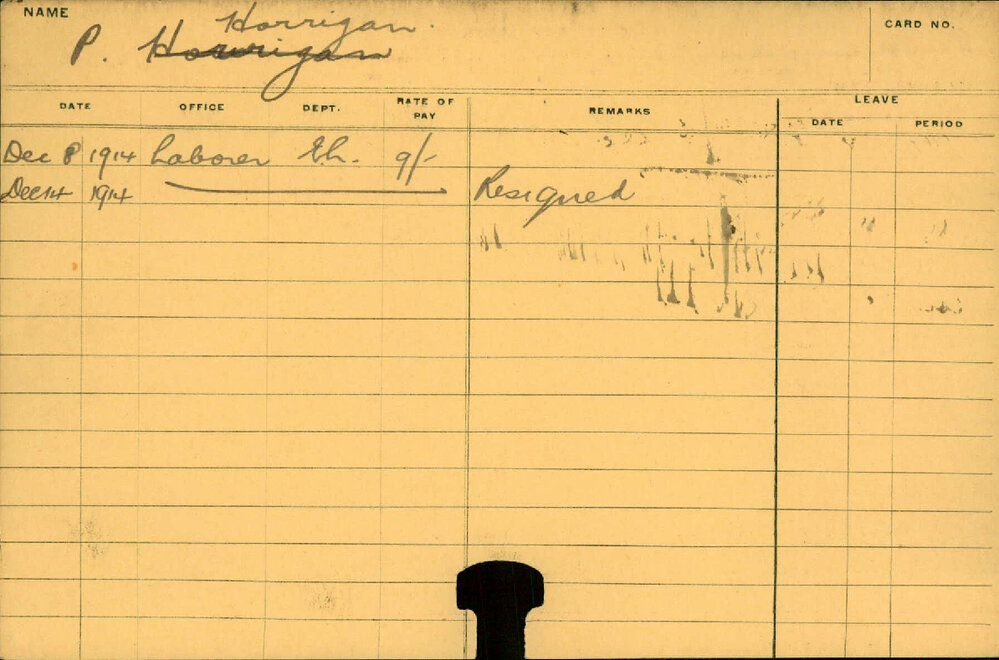 NAME
Horrigan.
P. Horrigan
CARD NO.
DATE OFFICE DEPT. RATE OF PAY REMARKS LEAVE
DATE PERIOD
Dec 8 1914 Laborer Eh. 9/-
Dec 14 1914 Resigned